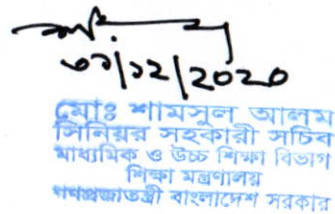 ৩১/১২/২০২০
মোঃ শামসুল আলম
সিনিয়র সহকারী সচিব
মাধ্যমিক ও উচ্চ শিক্ষা বিভাগ
শিক্ষা মন্ত্রণালয়
গণপ্রজাতন্ত্রী বাংলাদেশ সরকার